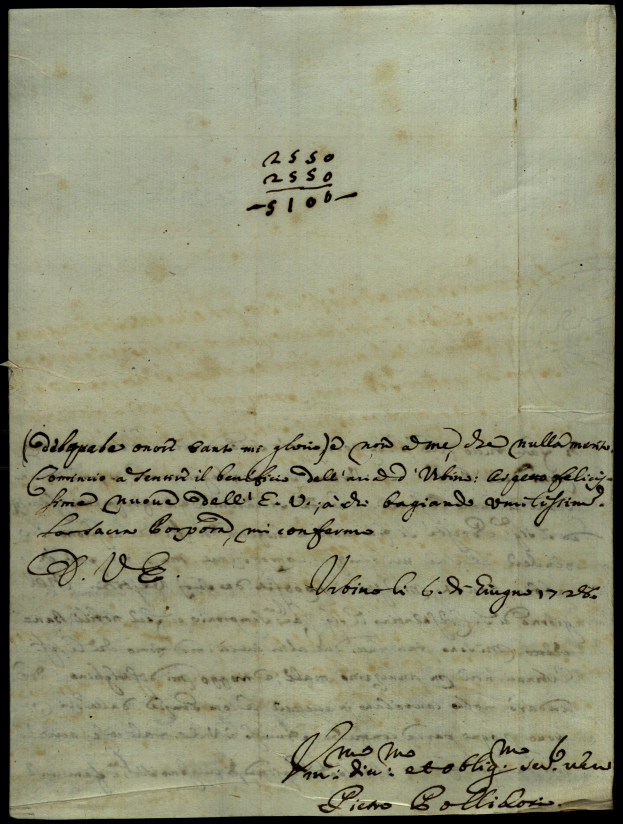 2550
2550
5100
(del quale onore tanto mi glorio) e non a me, che nulla merito
Comincio a sentire il benefizio dell'aria d'Urbino: Aspetto felicis=
sime nuove dell'E. V., a che bagiando umilissimᵉ
la sacra Porpora, mi confermo
D. V. E.
Urbino li 6. di Giugno 1728.
Umᵐᵒ: diuᵐᵒ: et obligᵐᵒ: serᵉ. vero
Pietro Pollidori.